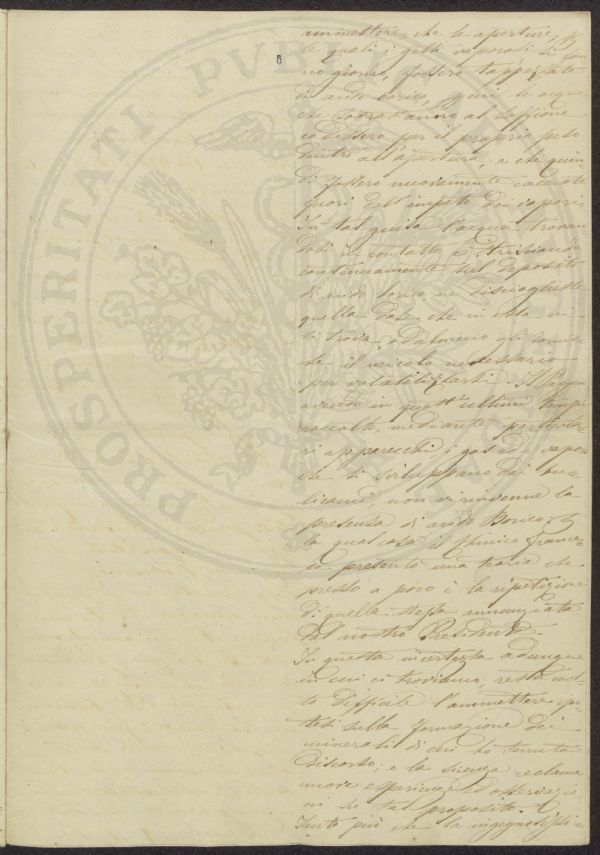 5
ammettere, che le aperture, p
le quali i getti vaporosi si fan
no giorno, fossero tappezzate
di acido borico, quindi le acque
che sovrastanno al soffione
cadessero per il proprio peso
dentro all'apertura, e che quin-
di fossero nuovamente cacciate
fuori dall'impeto dei vapori.
In tal guisa l'acqua trovan
dosi in contatto e strisciando
continuamente sul deposito
di acido borico ne disciogliesse
quella dose che in essa vi
si trova, od almeno gli fornis-
se il veicolo necessario
per volatilizzarsi. Il Payen
avendo in quest'ultimi tempi
raccolto, mediante particola-
ri apparecchi, i gas ed i vapori
che si sviluppano dai bu-
licami, non vi rinvenne la
presenza di acido Borico;
la qual cosa il Chimico france-
se presentò una teoria che
presso a poco è la ripetizione
di quella stessa annunziata
dal nostro Presidente.
In questa incertezza adunque
in cui ci troviamo, resta mol-
to difficile l'ammettere ipo-
tesi sulla formazione dei
minerali di cui ho tenuto
discorso; e la scienza reclama
nuove esperienze ed osservazio
ni in tal proposito.
Tanto più che la ingegnosissi-
PROSPERITATI PUBLICAE